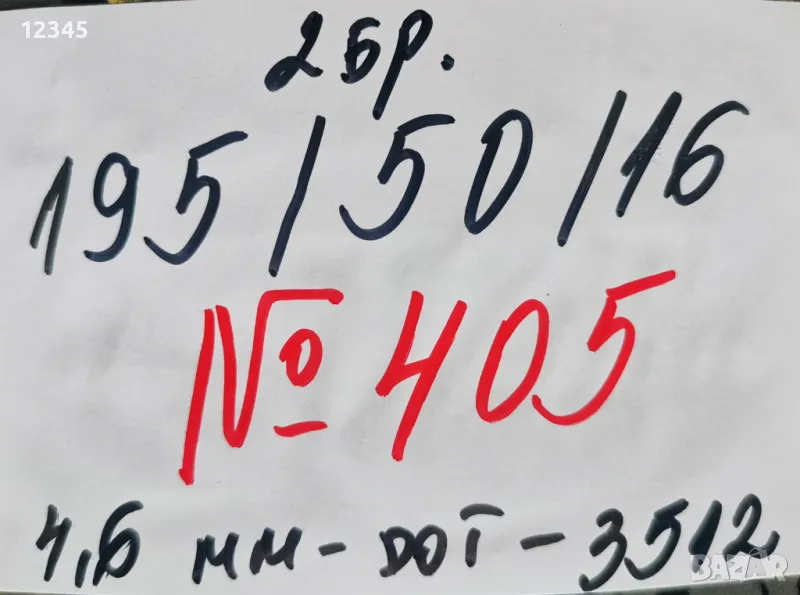 12345
2 бр.
195/50/16
№ 405
4,6 мм - DOT - 3512
BAZAR